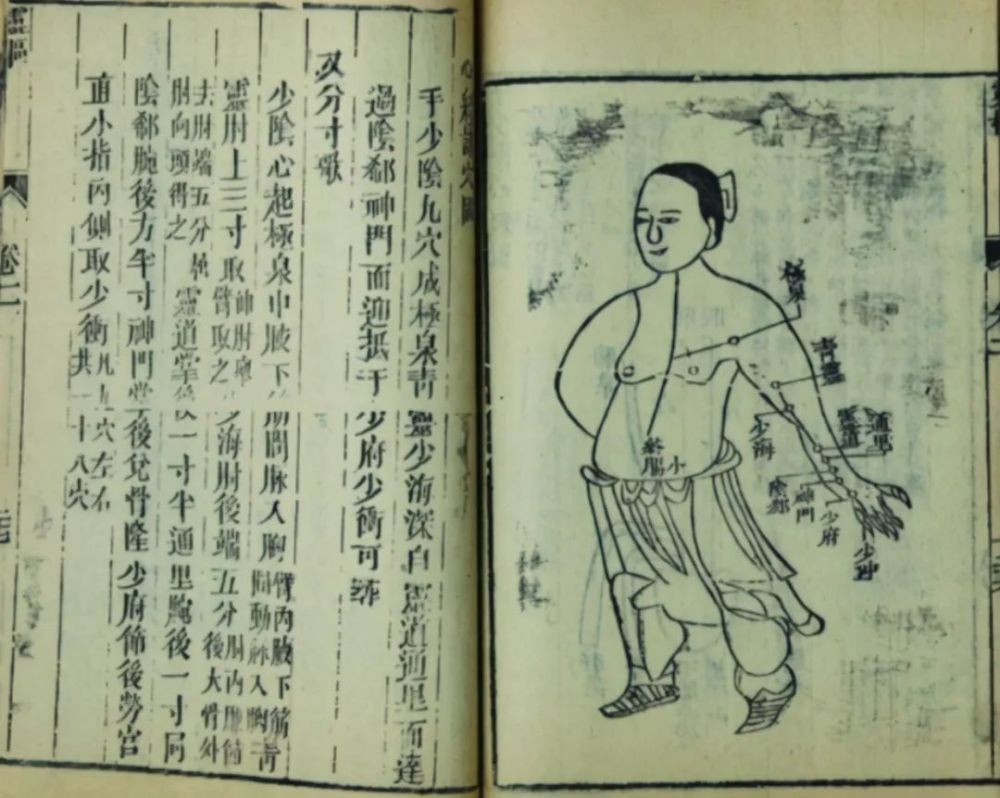 手少陰九穴成極泉青靈少海深自靈道通里而達
過陰郄神門而迎抵于少府少衝可尋
又分寸歌
少陰心起極泉中腋下筋間脉入胸臂內腋下筋間動脉入胸青
靈肘上三寸取伸肘舉臂取之少海肘後端五分肘內廉節後大骨外
去肘端五分屈肘向頭得之靈道掌後一寸半通里腕後一寸同
陰郄腕後方半寸神門掌後兌骨隆少府節後勞宮
直小指內側取少衝凡九穴左右共一十八穴
靈樞
卷二
極泉
青靈
通里
靈道
少海
絡小腸
陰郄
神門
少府
少沖